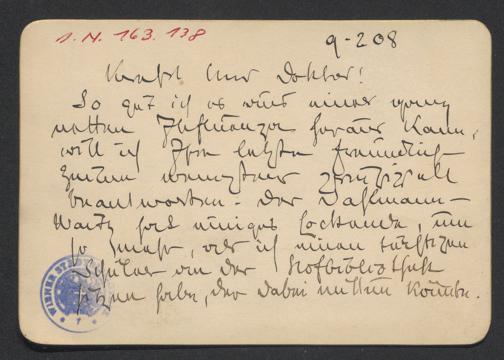 I. N. 163.138
9-208
Herr Doktor!
So gut ich es aus einer ganz
netten Influenza heraus kann,
will ich Ihre letzten freundlich
Zeilen wenigstens prinzipiell
beantworten. Der Dahlmann-
Waitz hat einiges Lockende, um
so mehr, als ich einen tüchtigen
Schüler an der Hofbibliothek
sitzen habe, der dabei mittun könnte.
WIENER